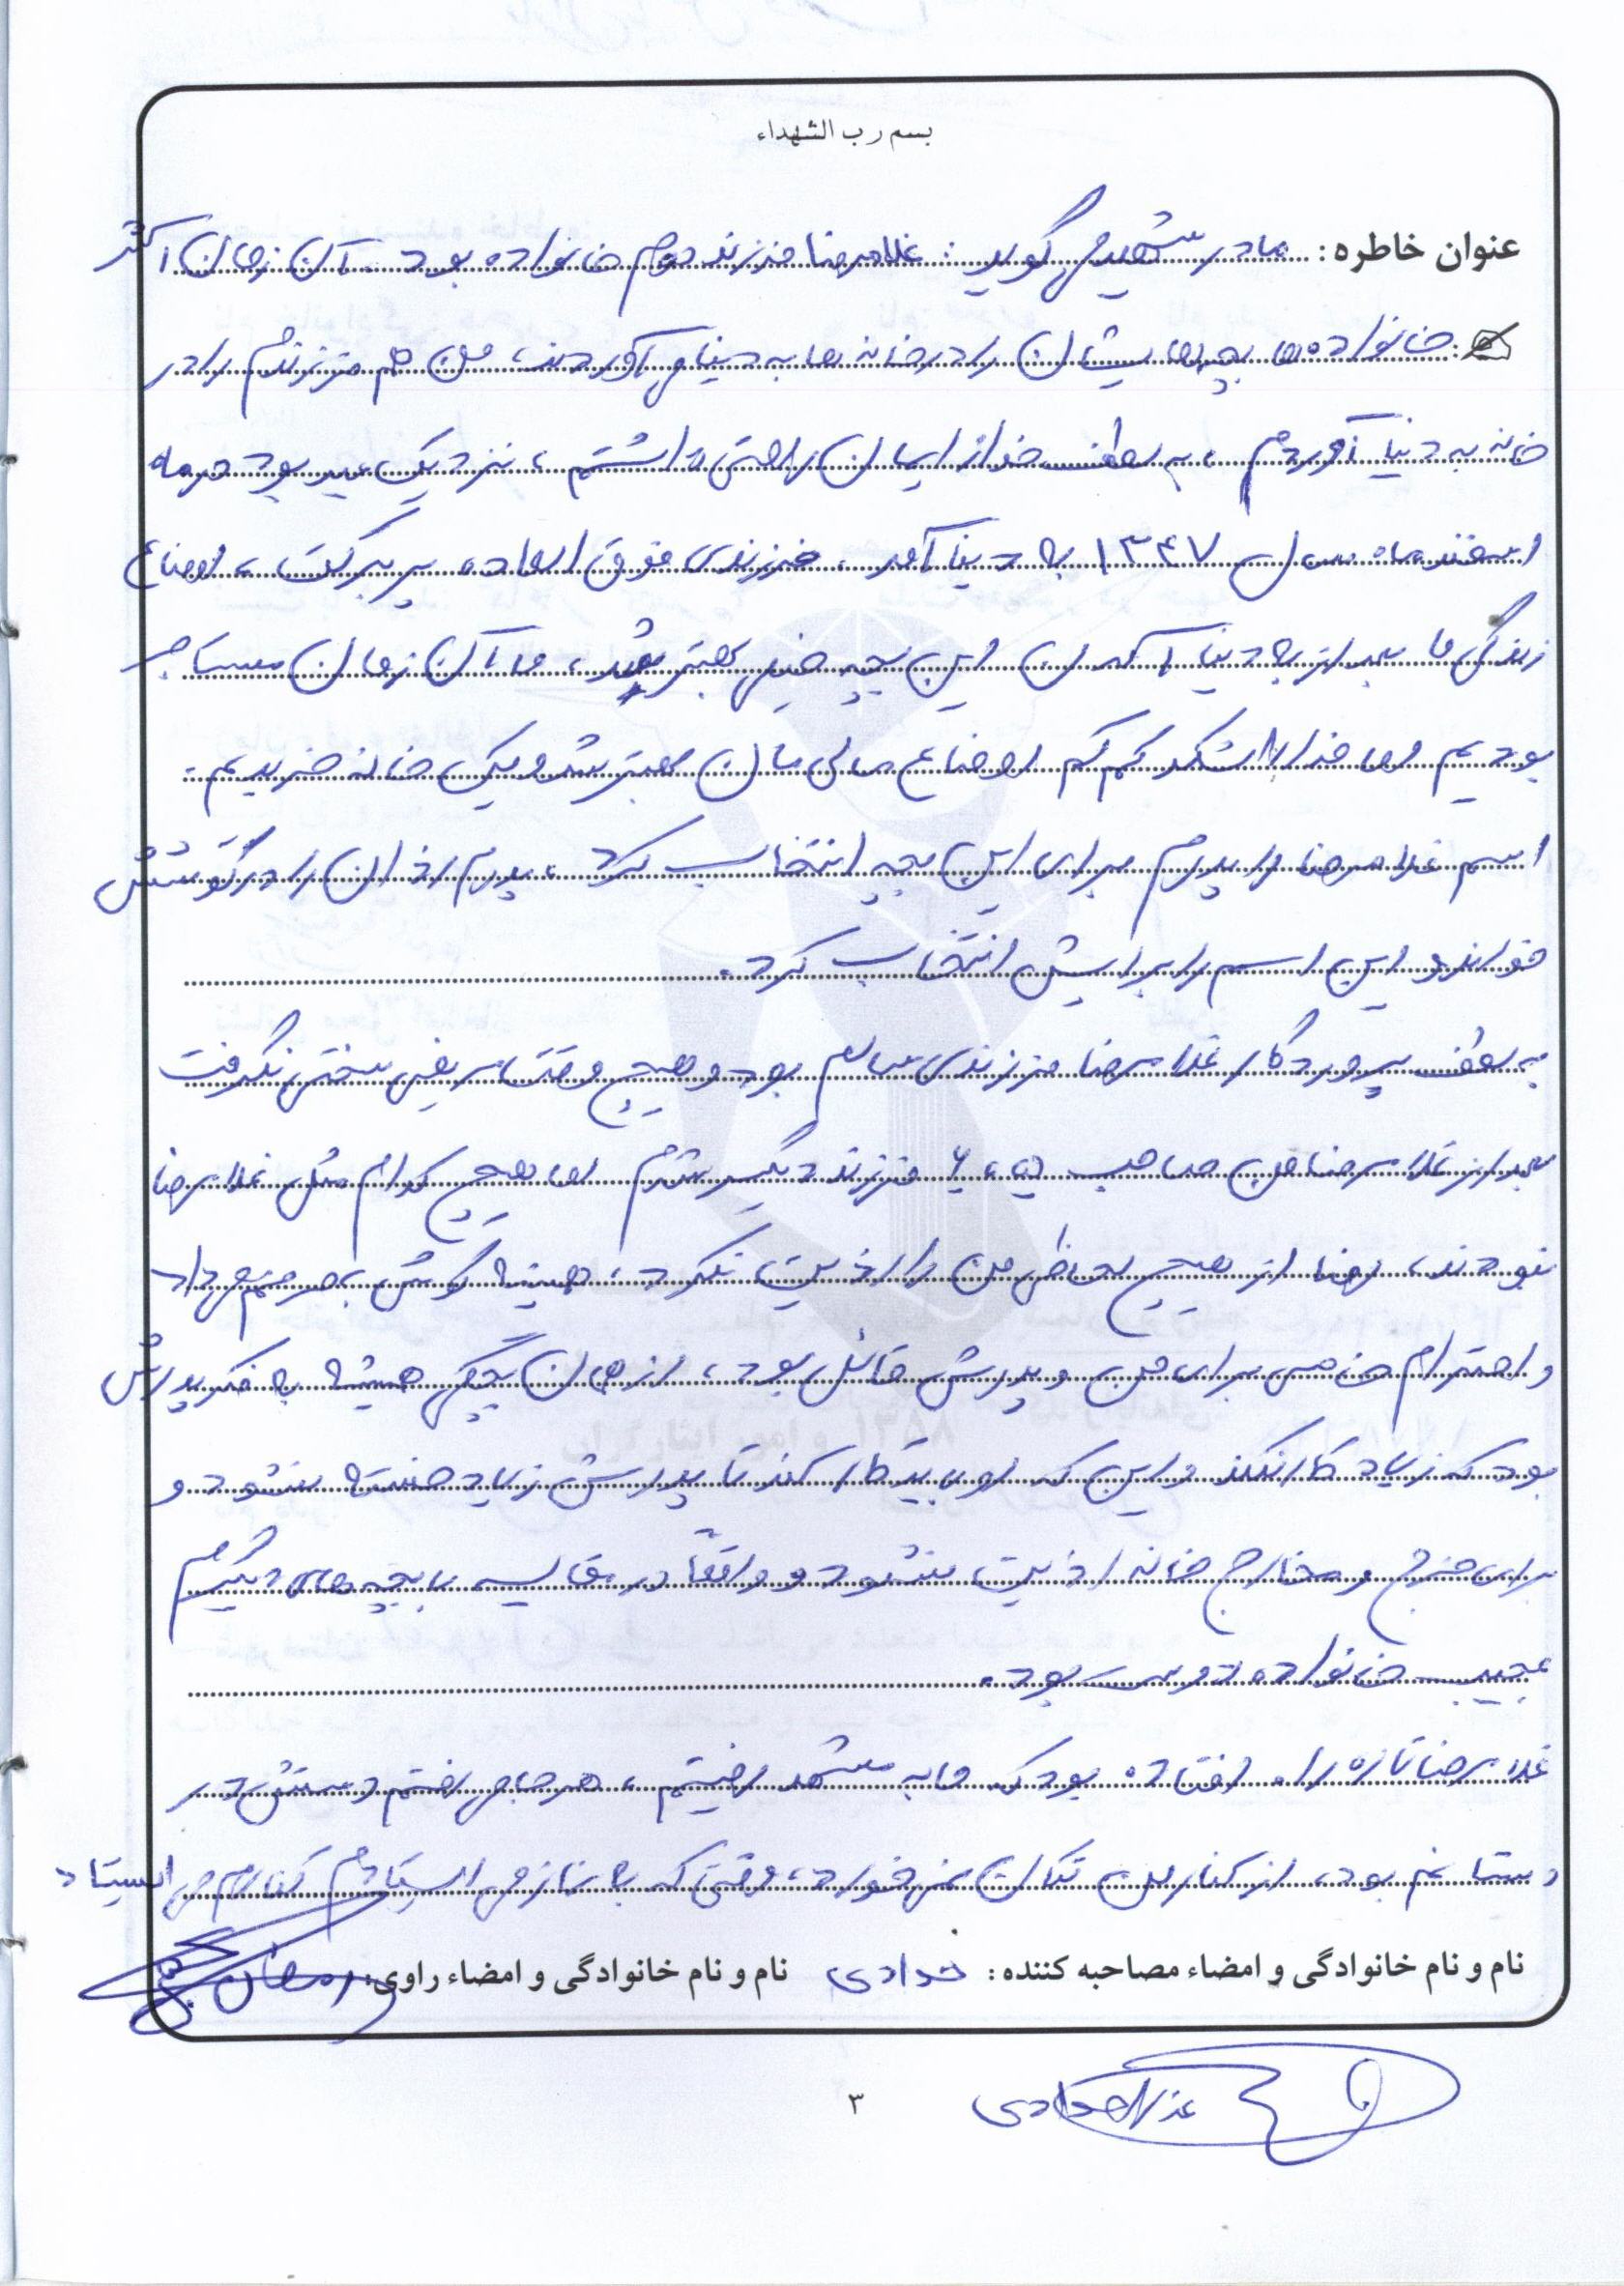 بسم رب الشهداء
عنوان خاطره: مادر شهید می گوید: غلامرضا فرزند دوم خانواده بود. آن زمان اکثر
خانواده ها بچه هایشان را در خانه ها به دنیا می آوردند، من هم فرزندم را در
خانه به دنیا آوردم، به لطف خدا زایمان راحتی داشتم، نزدیک عید بود در ماه
اسفند ماه سال ۱۳۴۷ به دنیا آمد. فرزندی فوق العاده پر برکت، اوضاع
زندگی ما بعد از به دنیا آمدن این بچه خیلی بهتر شد، ما آن زمان مستاجر
بودیم اما خدا را شکر کم کم اوضاع مالی مان بهتر شد و یک خانه خریدیم.
اسم غلامرضا را پدرم برای این بچه انتخاب کرد، پدرم اذان را در گوشش
خواند و این اسم را برایش انتخاب کرد.
به لطف پروردگار غلامرضا فرزندی سالم بود و هیچ وقت مریضی سختی نگرفت
بعد از غلامرضا من صاحب ۵، ۶ فرزند دیگر شدم اما هیچ کدام مثل غلامرضا
نبودند، رضا از هیچ لحاظی من را اذیت نکرد، همیشه گوش به حرفم می داد
و احترام خاصی برای من و پدرش قائل بود، از همان بچگی همیشه به فکر پدرش
بود که زیاد کار نکند و این که او باید کار کند تا پدرش زیاد خسته نشود و
برای خرج و مخارج خانه اذیت نشود و واقعاً در مقایسه با بچه های دیگرم
عجیب خانواده دوست بود.
غلامرضا تازه راه افتاده بود که ما به مشهد رفتیم، هر جا می رفتم دستش در
دستانم بود، از کنار من تکان نمی خورد، وقتی که به نماز می ایستادم کنارم می ایستاد
نام و نام خانوادگی و امضاء مصاحبه کننده: حدادی نام و نام خانوادگی و امضاء راوی: رمضان
حدادی
۳